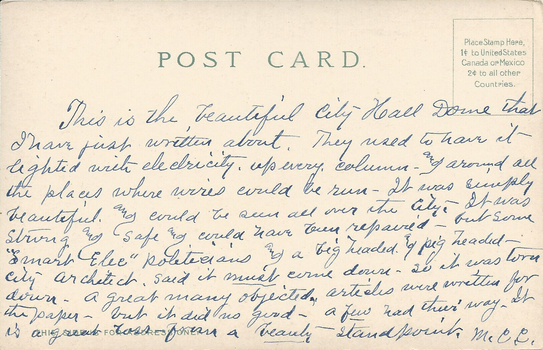 POST CARD.
Place Stamp Here,
1¢ to United States
Canada or Mexico
2¢ to all other
Countries.
This is the beautiful City Hall Dome that
I have just written about. They used to have it
lighted with electricity. up every column - and around all
the places where wires could be run - It was simply
beautiful. and could be seen all over the City - It was
strong and safe and could have been repaired - but some
"Smart Elec" Politicians and a big headed & pig headed -
City Architect. Said it must come down - so it was torn
down - A great many objected, articles were written for
the paper - but it did no good - a few had their way - It
is a great loss from a beauty standpoint. M.C.C.
THIS SIDE IS FOR